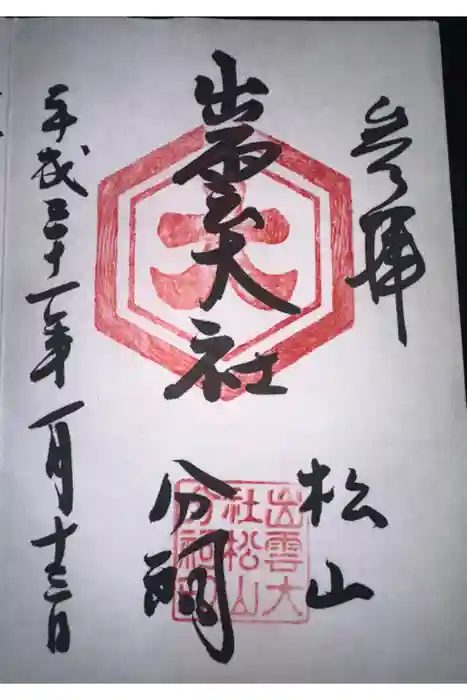 参拝
出雲大社
松山
分祠
平成三十一年一月十三日
大
出雲大
社松山
分祠印